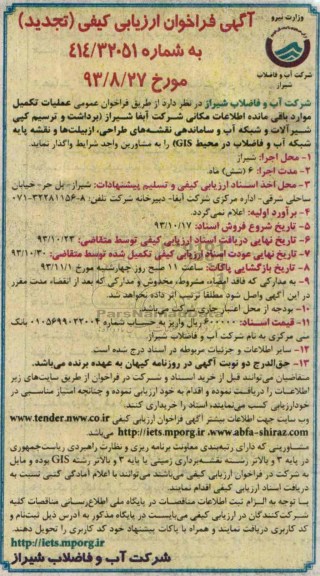 وزارت نیرو
شرکت آب و فاضلاب
شیراز
آگهی فراخوان ارزیابی کیفی (تجدید)
به شماره ۴۱۴/۳۲۰۵۱
مورخ ۹۳/۸/۲۷
شرکت آب و فاضلاب شیراز در نظر دارد از طریق فراخوان عمومی عملیات تکمیل
موارد باقی مانده اطلاعات مکانی شرکت آبفا شیراز (برداشت و ترسیم کپی
شیرآلات و شبکه آب و ساماندهی نقشه‌های طراحی، ازبیلت‌ها و نقشه پایه
شبکه آب و فاضلاب در محیط GIS) را به مشاورین واجد شرایط واگذار نماید.
۱- محل اجرا: شیراز
۲- مدت اجرا: ۶ (شش) ماه.
۳- محل اخذ اسناد ارزیابی کیفی و تسلیم پیشنهادات: شیراز- پل حر- خیابان
ساحلی شرقی- اداره مرکزی شرکت آبفا- دبیرخانه شرکت تلفن: ۸-۳۲۲۸۱۱۵۶-۰۷۱
۴- برآورد اولیه: اعلام نمی‌گردد.
۵- تاریخ شروع فروش اسناد: ۹۳/۱۰/۱۷
۶- تاریخ نهایی دریافت اسناد ارزیابی کیفی توسط متقاضی: ۹۳/۱۰/۲۳
۷- تاریخ نهایی عودت اسناد ارزیابی کیفی تکمیل شده توسط متقاضی: ۹۳/۱۰/۳۰
۸- تاریخ بازگشایی پاکات: ساعت ۱۱ صبح روز چهارشنبه مورخ ۹۳/۱۱/۱
۹- به مدارکی که فاقد امضاء، مشروط، مخدوش و مدارکی که بعد از انقضاء مدت مقرر
در این آگهی واصل شود مطلقا ترتیب اثر داده نخواهد شد.
۱۰- بودجه از محل اعتبار جاری شرکت می‌باشد.
۱۱- قیمت اسناد: ۶۰۰۰۰۰ ریال واریز به حساب شماره ۰۱۰۵۶۹۹۰۲۲۰۰۴ بانک
ملی مرکزی به نام شرکت آب و فاضلاب شیراز.
۱۲- سایر اطلاعات و جزئیات مربوطه در اسناد درج شده است.
۱۳- حق‌الدرج دو نوبت آگهی در روزنامه کیهان به عهده برنده می‌باشد.
متقاضیان می‌توانند قبل از خرید اسناد و شرکت در فراخوان از طریق سایت‌های زیر
اطلاعات را دریافت نموده و اقدام به خود ارزیابی نموده و چنانچه امتیاز مناسبی در
خودارزیابی کسب می‌نمایند، اسناد را خریداری کنند.
وب سایت جهت اطلاعات بیشتر آگهی فراخوان ارزیابی کیفی www.tender.nww.co.ir
www.abfa-shiraz.com و http://iets.mporg.ir می‌باشد.
مشاورینی که دارای رتبه‌بندی معاونت برنامه ریزی و نظارت راهبردی ریاست‌جمهوری
در پایه ۳ و بالاتر رشته نقشه‌برداری زمینی یا پایه ۳ و بالاتر رشته GIS بوده و مایل
به شرکت در فراخوان ارزیابی کیفی می‌باشند می‌توانند با اعلام آمادگی کتبی نسبت به
دریافت اسناد ارزیابی کیفی اقدام نمایند.
با توجه به الزام ثبت اطلاعات مناقصات در پایگاه ملی اطلاع‌رسانی مناقصات کلیه
شرکت‌کنندگان در ارزیابی کیفی می‌بایست در پایگاه مذکور به آدرس ذیل ثبت‌نام و
کد کاربری دریافت نمایند و همراه با پاکات پیشنهاد خود کد کاربری را تحویل دهند.
http://iets.mporg.ir
شرکت آب و فاضلاب شیراز